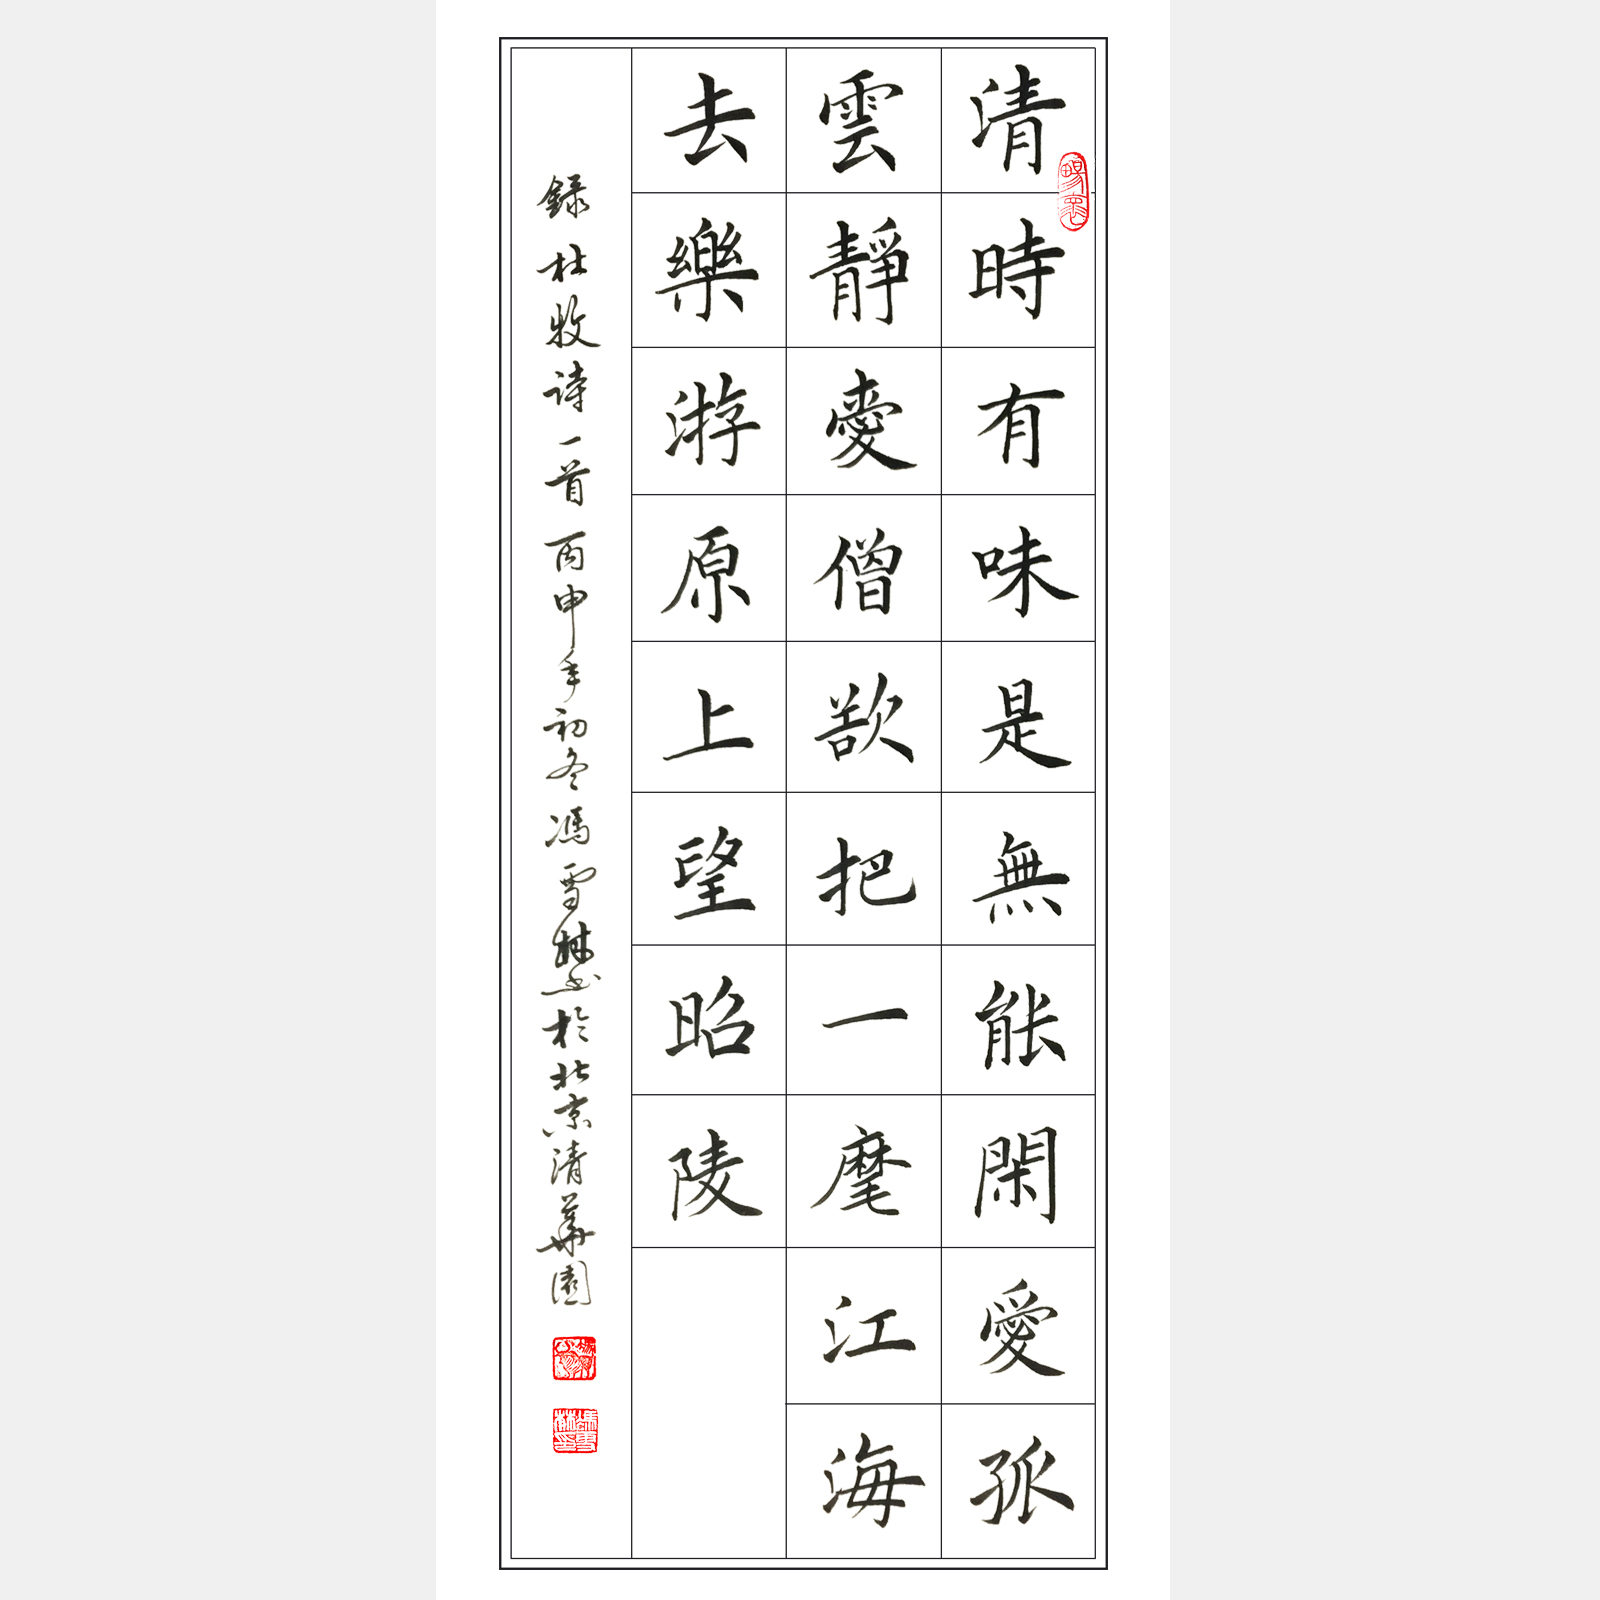 清時有味是無能閑愛孤
雲靜愛僧欲把一麾江海
去樂游原上望昭陵
録杜牧诗一首丙申年初冬馮雪林书於北京清華園
馮雪林印